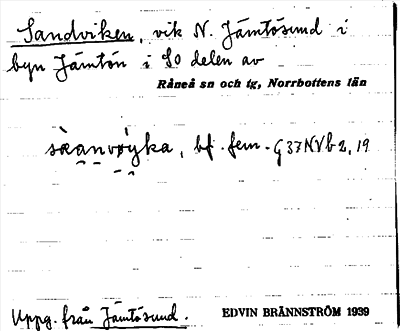 Sandviken, vik N. Jämtösund i
byn Jämtön i SO delen av
Råneå sn och tg, Norrbottens län
bf. fem. G 37 NVb 2, 19
Uppg. från Jämtösund.
EDVIN BRÄNNSTRÖM 1939